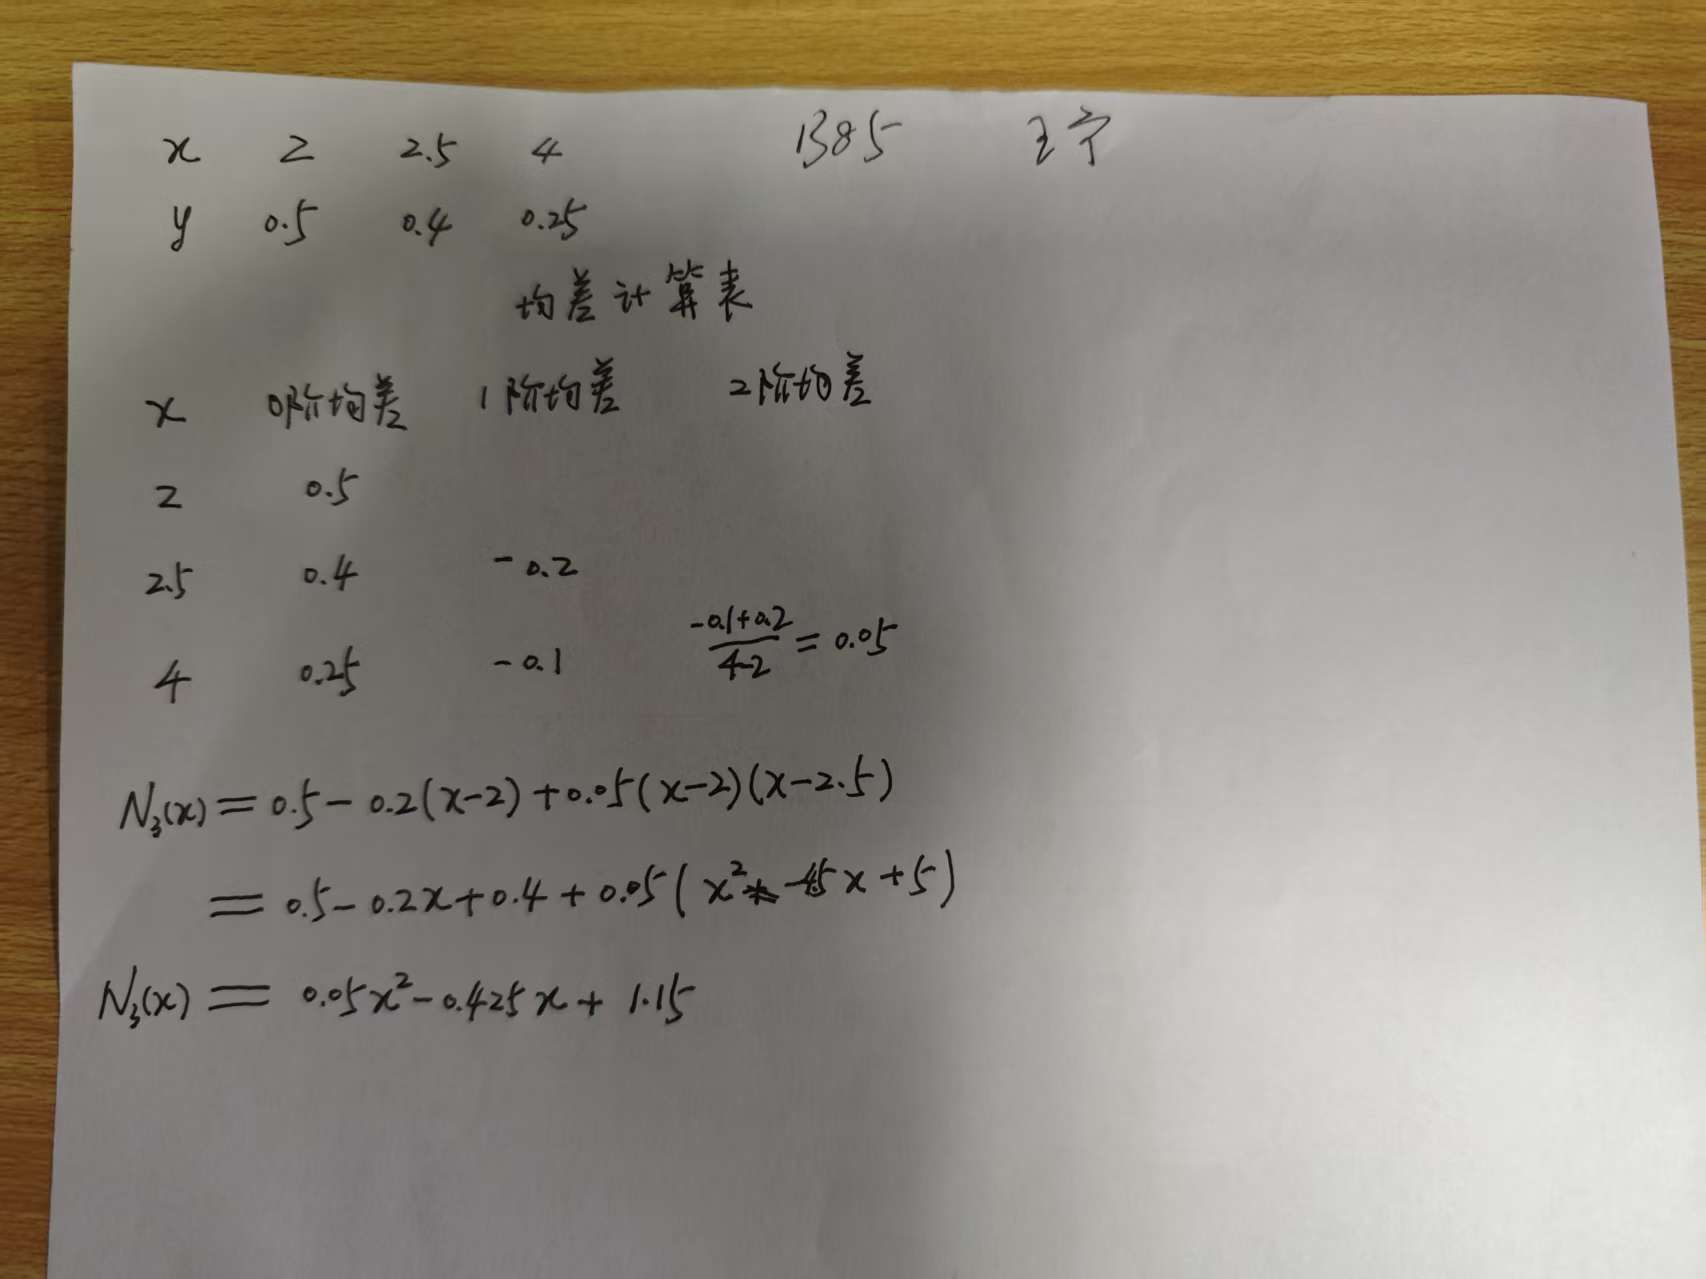 x 2 2.5 4 1385 王宁
y 0.5 0.4 0.25
均差计算表
x 0阶均差 1阶均差 2阶均差
2 0.5
2.5 0.4 -0.2
4 0.25 -0.1 (-0.1+0.2)/(4-2) = 0.05
N₃(x) = 0.5 - 0.2(x-2) + 0.05(x-2)(x-2.5)
= 0.5 - 0.2x + 0.4 + 0.05(x² -4.5x + 5)
N₃(x) = 0.05x² - 0.425x + 1.15